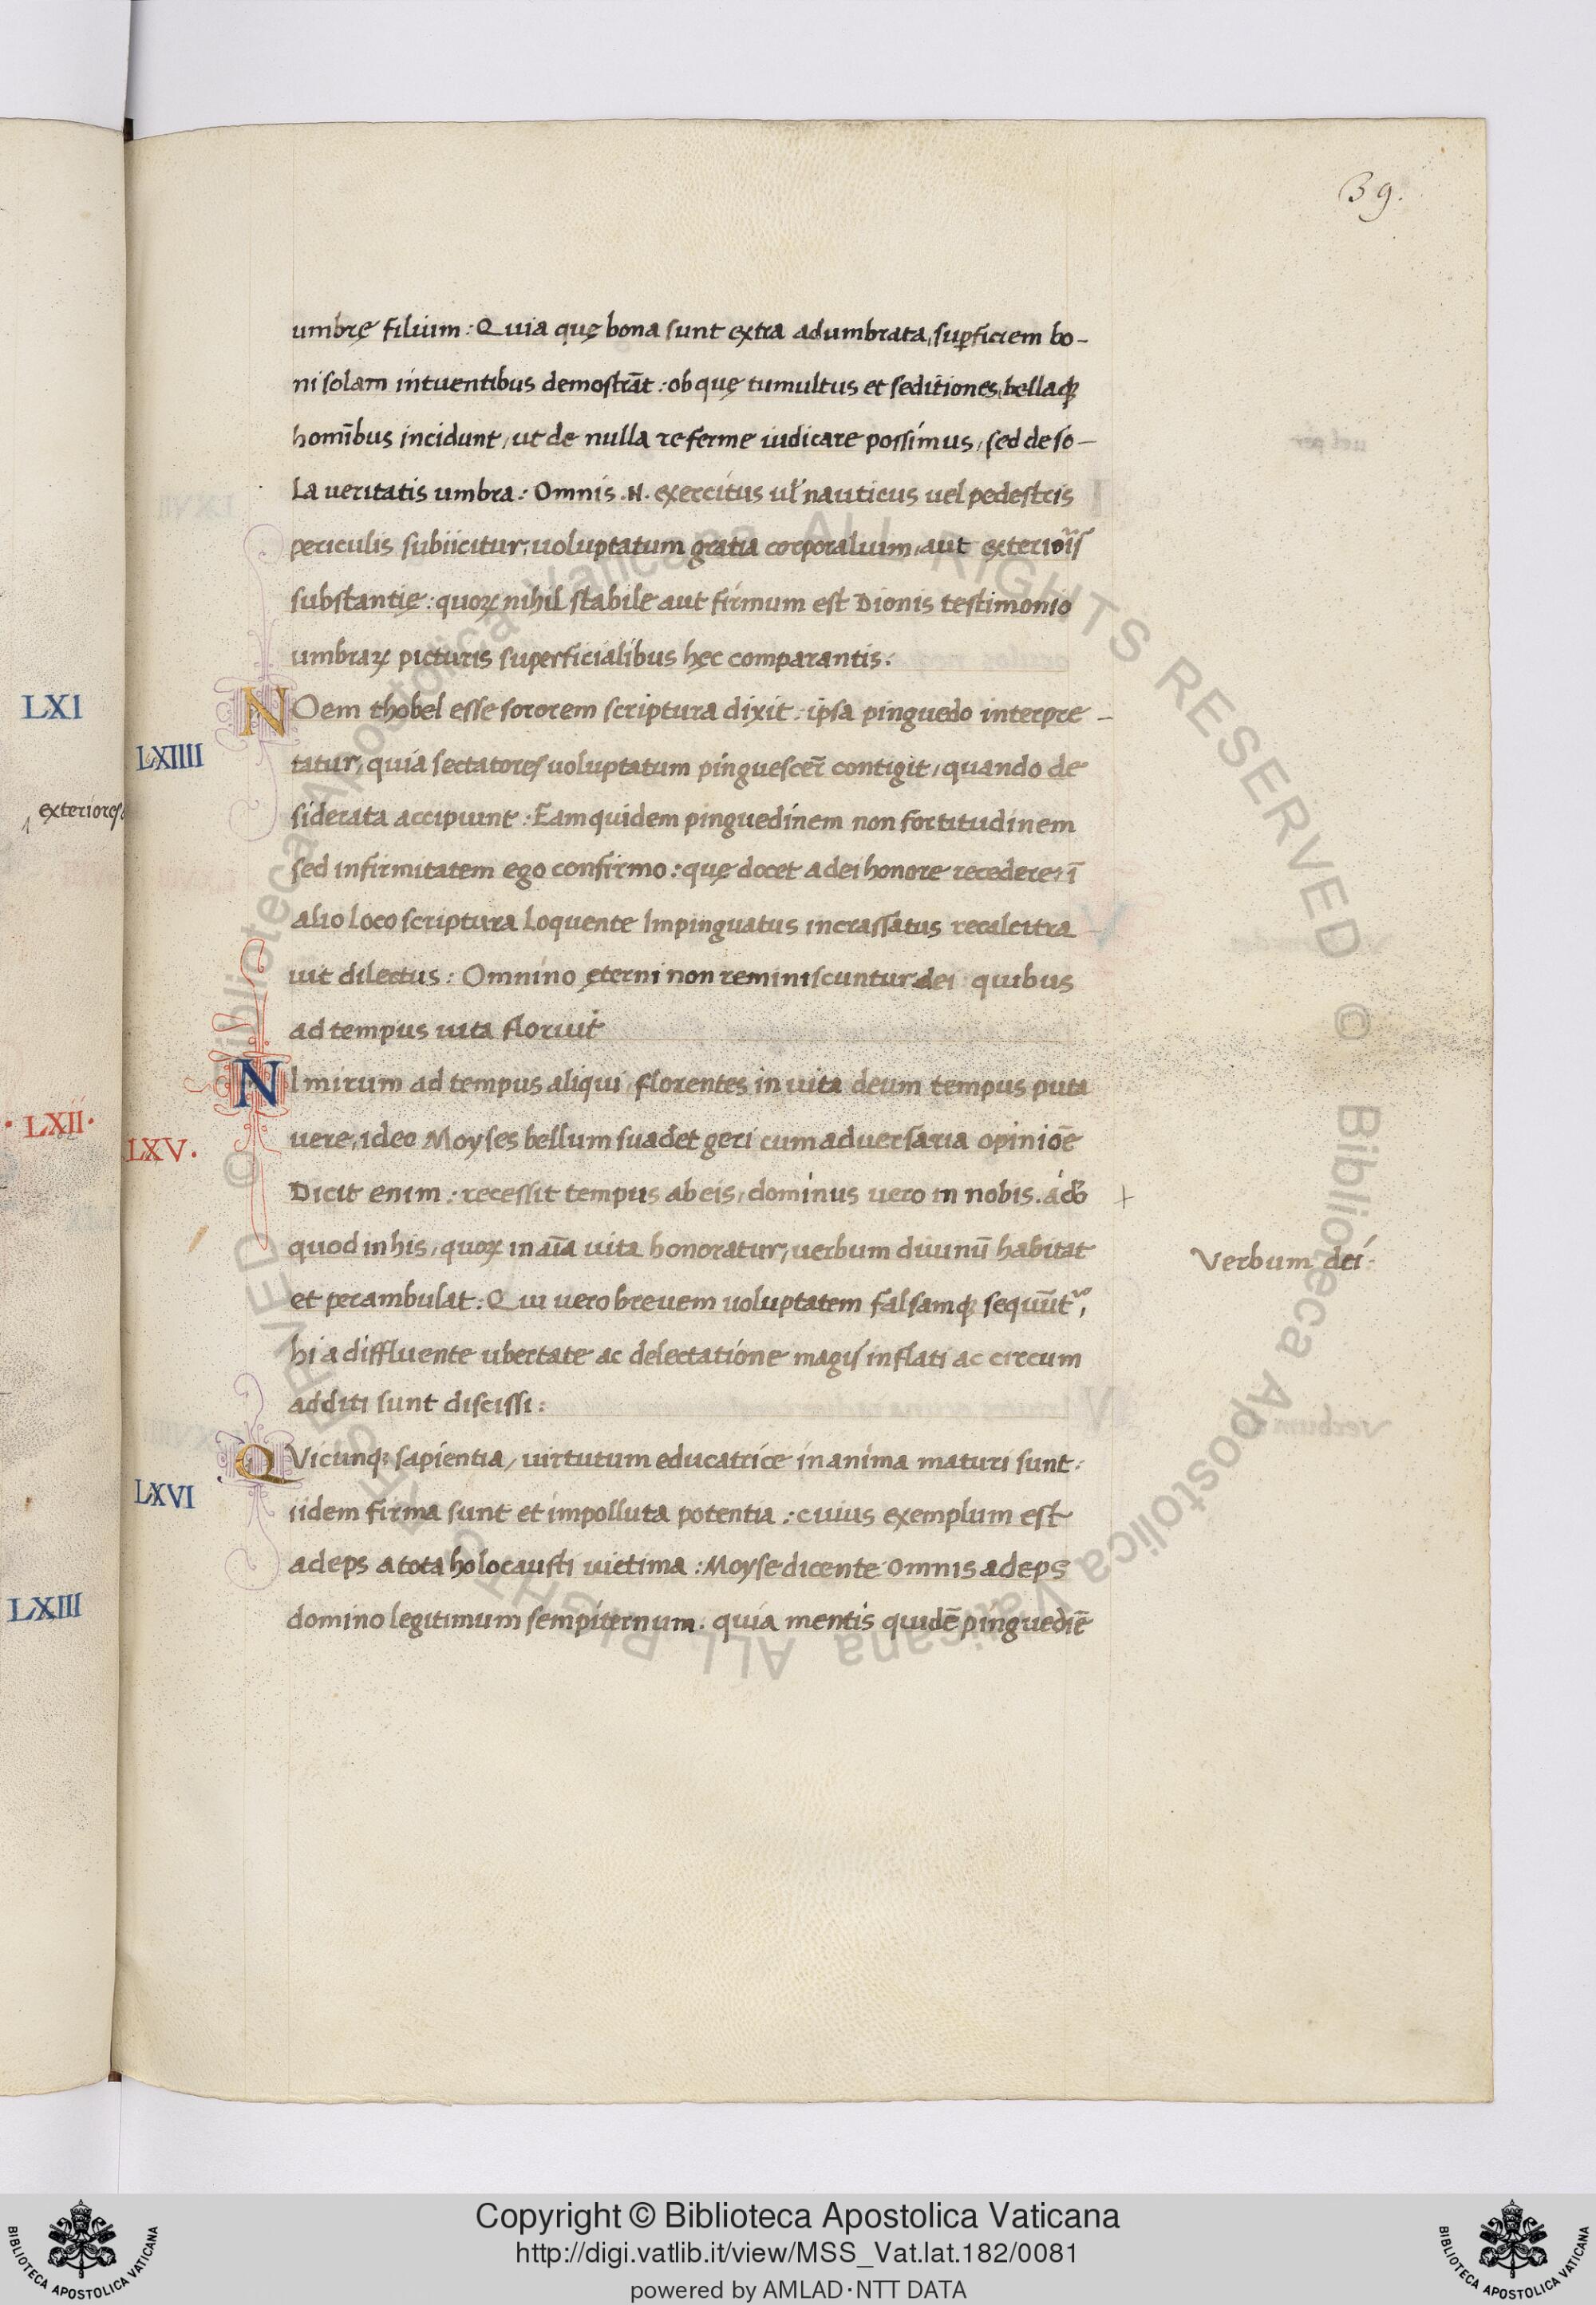 39.
umbrę filium: Quia quę bona sunt extra adumbrata, suꝑficiem bo-
ni solam intuentibus demostrāt: ob quę tumultus et seditiones, bellaqꝫ
homībus incidunt, ut de nulla re ferme iudicare possimus, sed de so-
la ueritatis umbra: Omnis .N. exercitus ul̉ nauticus uel pedestris
periculis subiicitur, uoluptatum gratia corporalium, aut exterioris
substantię: quoꝝ nihil stabile aut firmum est Dionis testimonio
umbraꝝ picturis superficialibus hęc comparantis:
LXI
NOem thobel esse sororem scriptura dixit: ipsa pinguedo interpre-
LXIIII
tatur, quia sectatores uoluptatum pinguescer̄ contigit, quando de
siderata accipiunt: Eam quidem pinguedinem non fortitudinem
exteriores
sed infirmitatem ego confirmo: quę docet a dei honore recedere: ī
alio loco scriptura loquente Impinguatus incrassatus recalcitra
uit dilectus: Omnino ęterni non reminiscuntur dei quibus
ad tempus uita floruit
NImirum ad tempus aliqui florentes in uita deum tempus puta
· LXII·
uere, ideo Moyses bellum suadet geri cum aduersaria opiniōe
LXV.
Dicit enim: recessit tempus ab eis, dominus uero in nobis. ádō +
quod in his, quoꝝ in aīa uita honoratur, uerbum diuinū habitat
Verbum dei:
et perambulat: Qui uero breuem uoluptatem falsamqꝫ sequūt᷑,
hi a diffluente ubertate ac delectatione magis inflati ac circum
additi sunt discissi:
QVicunqꝫ sapientia, uirtutum educatrice in anima maturi sunt:
LXVI
iidem firma sunt et impolluta potentia: cuius exemplum est
adeps a tota holocausti uictima: Moyse dicente Omnis adeps
LXIII
domino legitimum sempiternum. quia mentis quidē pinguediē
Copyright © Biblioteca Apostolica Vaticana
http://digi.vatlib.it/view/MSS_Vat.lat.182/0081
powered by AMLAD·NTT DATA
BIBLIOTECA APOSTOLICA VATICANA
BIBLIOTECA APOSTOLICA VATICANA
© Biblioteca Apostolica Vaticana ALL RIGHTS RESERVED © Biblioteca Apostolica Vaticana ALL RIGHTS RESERVED